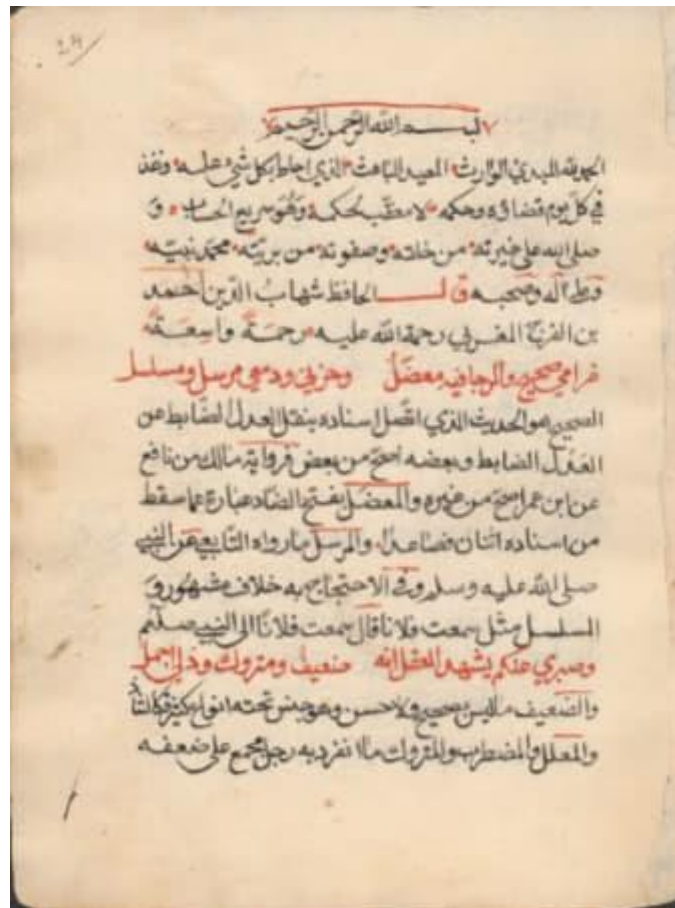 24
بسم الله الرحمن الرحيم
الحمد لله المبدئ الوارث المعيد الباعث الذي احاط بكل شئ علمه ونفذ
في كل يوم قضاؤه وحكمه لا معقب لحكمه وهو سريع الحساب و
صلى الله على خيرته من خلقه وصفوته من بريته محمد نبيه
وعلى آله وصحبه قال الحافظ شهاب الدين احمد
بن الفرح المغربي رحمة الله عليه رحمة واسعة
غرامي صحيح والرجا فيه معضل وحزني ودمعي مرسل ومسلسل
الصحيح هو الحديث الذي اتصل اسناده بنقل العدل الضابط عن
العدل الضابط وبعضه اصح من بعض فرواية مالك من نافع
عن ابن عمر اصح من غيره والمعضل بفتح الضاد عبارة عما سقط
من اسناده اثنان فصاعدا والمرسل ما رواه التابعي عن النبي
صلى الله عليه وسلم وفي الاحتجاج به خلاف مشهور و
المسلسل مثل سمعت فلانا قال سمعت فلانا الى النبي صلعم
وصبري عنكم يشهد العقل انه ضعيف ومتروك وذلي اجمل
والضعيف ما ليس بصحيح ولا حسن وهو جنس تحته انواع كثيرة كالشاذ
والمعلل والمضطرب والمتروك ما انفرد به رجل مجمع على ضعفه